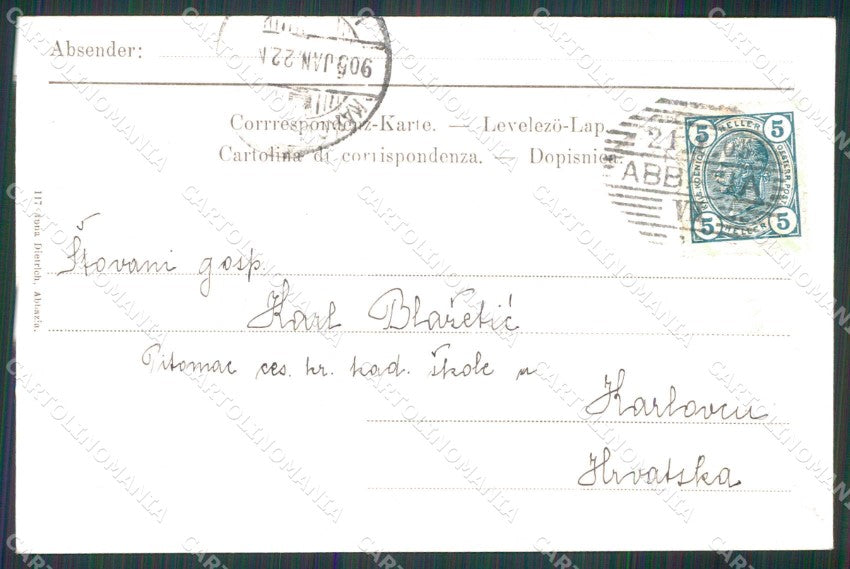 Absender:
905 JAN. 22
Corrrespondenz-Karte. — Levelezö-Lap.
Cartolina di corrispondenza. — Dopisnica.
21
ABBAZIA
5 HELLER 5
5 HELLER 5
117 Anna Dietrich, Abbazia.
Štovani gosp.
Karl Blažetić
Pitomac ces. kr. kad. škole u
Karlovcu
Hrvatska
CARTOLINOMANIA